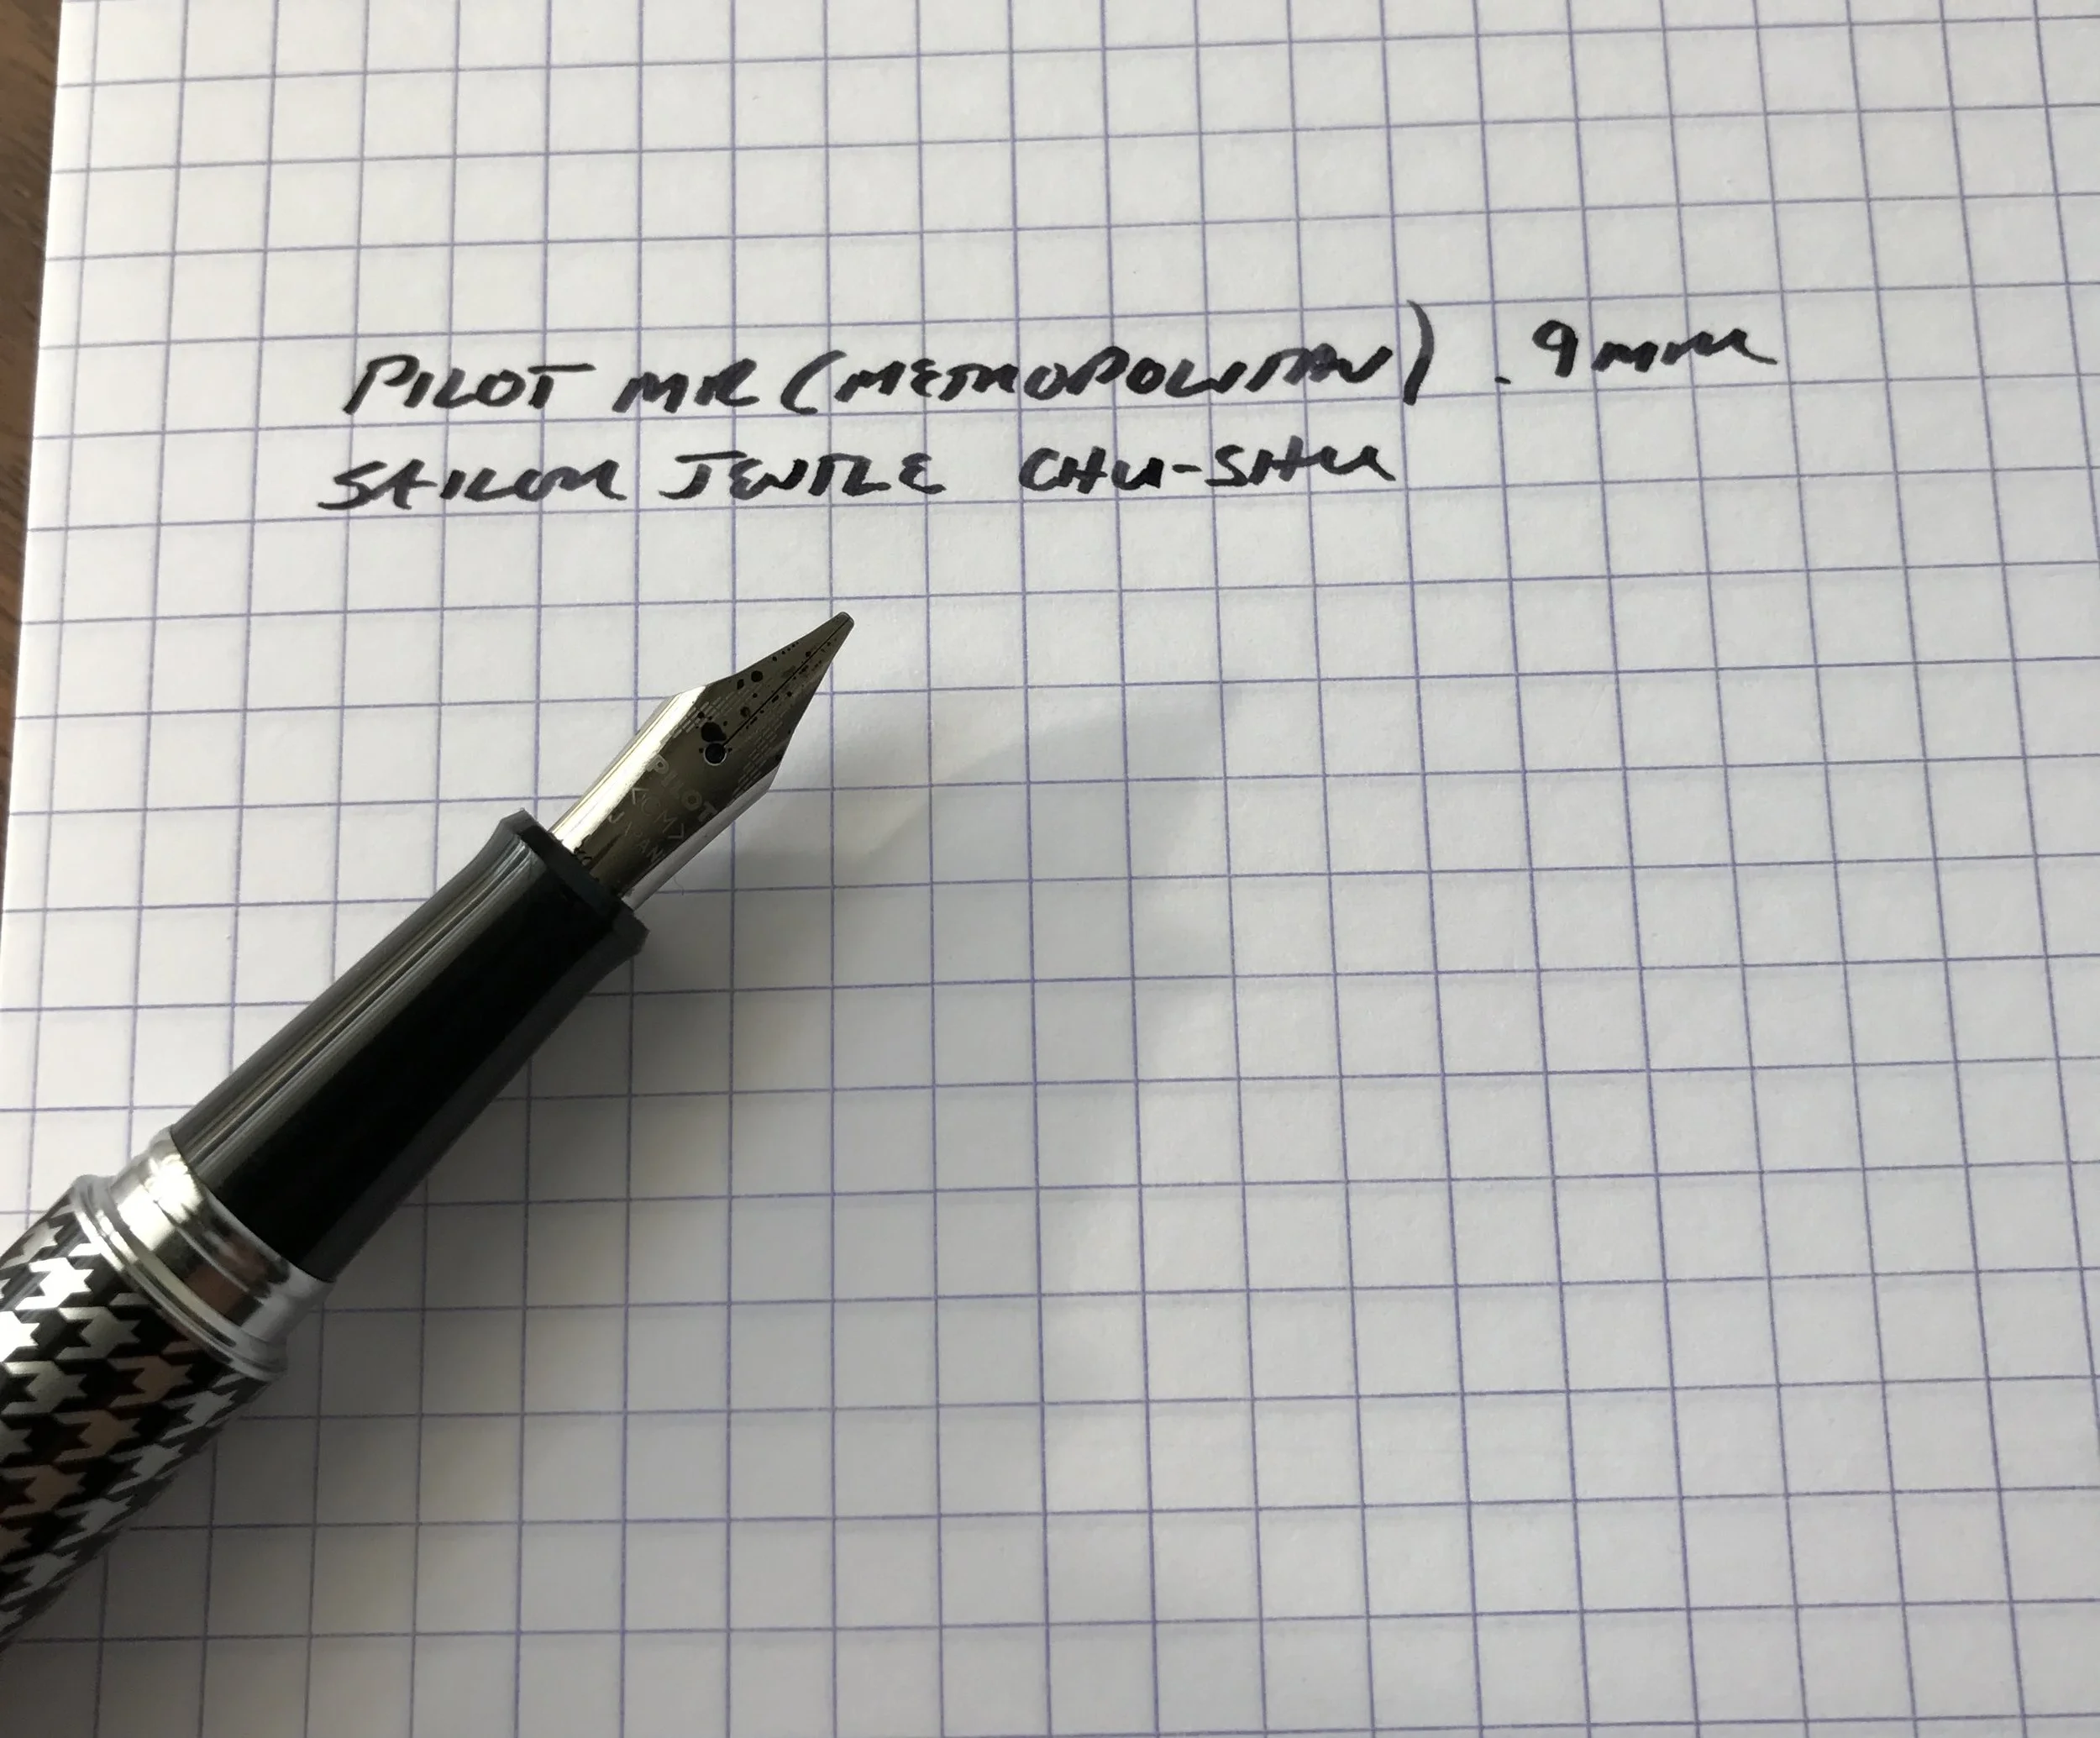 PILOT MR (METROPOLITAN) .9mm
SAILOR JENTLE CHU-SHU
PILOT
<CM>
JAPAN